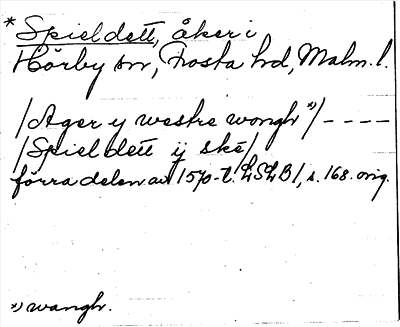 *Spieldett, åker i
Hörby sn, Frosta hd, Malm. l.
/Ager y westre wongh *)/ - - - -
/Spieldett ij ske/
förra delen av 1570-t. LSLB/, s. 168. orig.
*) wangh.